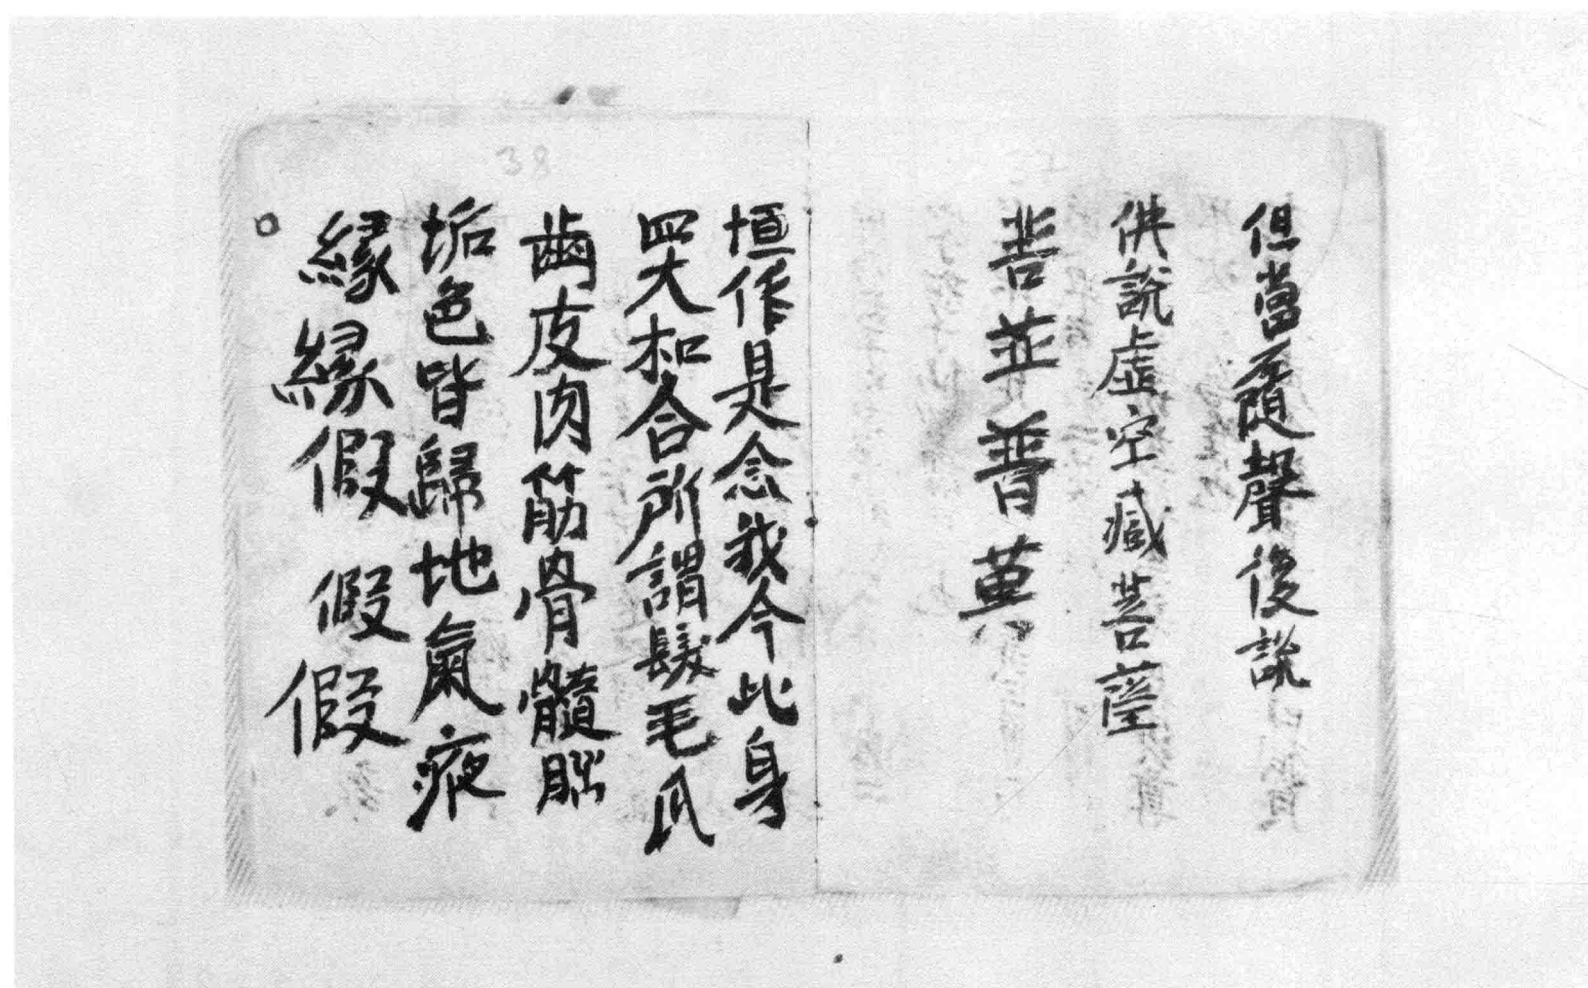 但當隨聲後説
供説虛空藏菩薩
菩並普
38
恒作是念我今此身
四大和合所謂髮毛爪
齒皮肉筋骨髓腦
垢色皆歸地氣液
緣緣假假假